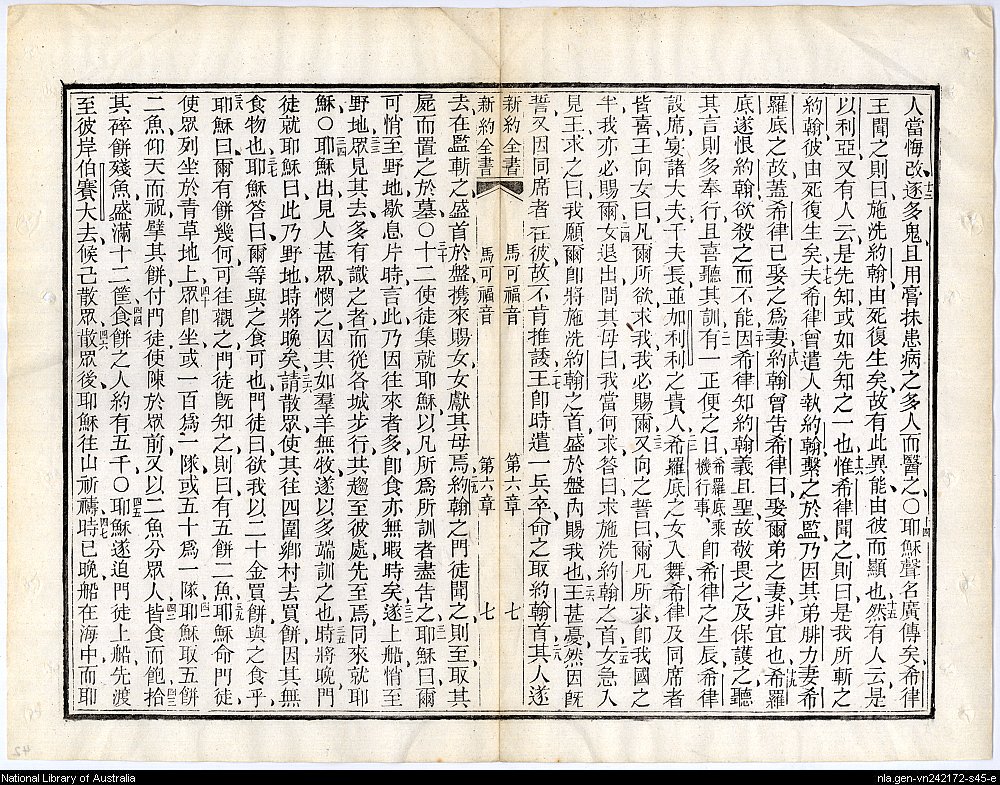 人當悔改逐多鬼且用膏抹患病之多人而醫之○耶穌聲名廣傳矣希律
十三 十四
王聞之則曰施洗約翰由死復生矣故有此異能由彼而顯也然有人云是
十五
以利亞又有人云是先知或如先知之一也惟希律聞之則曰是我所斬之
十六
約翰彼由死復生矣夫希律曾遣人執約翰繫之於監乃因其弟腓力妻希
十七
羅底之故蓋希律已娶之爲妻約翰曾告希律曰娶爾弟之妻非宜也希羅
十八 十九
底遂恨約翰欲殺之而不能因希律知約翰義且聖故敬畏之及保護之聽
二十
其言則多奉行且喜聽其訓有一正便之日希羅底乘機行事卽希律之生辰希律
二一
設席宴諸大夫千夫長並加利利之貴人希羅底之女入舞希律及同席者
二二
皆喜王向女曰凡爾所欲求我我必賜爾又向之誓曰爾凡所求卽我國之
二三
半我亦必賜爾女退出問其母曰我當何求答曰求施洗約翰之首女急入
二四 二五
見王求之曰我願爾卽將施洗約翰之首盛於盤內賜我也王甚憂然因旣
二六
誓又因同席者在彼故不肯推諉王卽時遣一兵卒命之取約翰首其人遂
二七 二八
新約全書 馬可福音 第六章 七
新約全書 馬可福音 第六章 七
去在監斬之盛首於盤攜來賜女女獻其母焉約翰之門徒聞之則至取其
二九
屍而置之於墓○十二使徒集就耶穌以凡所爲所訓者盡告之耶穌曰爾
三十 三一
可悄至野地歇息片時言此乃因往來者多卽食亦無暇時矣遂上船悄至
三二
野地眾見其去多有識之者而從各城步行共趨至彼處先至焉同來就耶
三三
穌○耶穌出見人甚眾憫之因其如羣羊無牧遂以多端訓之也時將晚門
三四 三五
徒就耶穌曰此乃野地時將晚矣請散眾使其往四圍鄉村去買餅因其無
三六
食物也耶穌答曰爾等與之食可也門徒曰欲我以二十金買餅與之食乎
三七
耶穌曰爾有餅幾何可往觀之門徒旣知之則曰有五餅二魚耶穌命門徒
三八 三九
使眾列坐於青草地上眾卽坐或一百爲一隊或五十爲一隊耶穌取五餅
四十 四一
二魚仰天而祝擘其餅付門徒使陳於眾前又以二魚分眾人皆食而飽拾
四二 四三
其碎餅殘魚盛滿十二筐食餅之人約有五千○耶穌遂迫門徒上船先渡
四四 四五
至彼岸伯賽大去候己散眾散眾後耶穌往山祈禱時已晚船在海中而耶
四六 四七
42
National Library of Australia
nla.gen-vn242172-s45-e